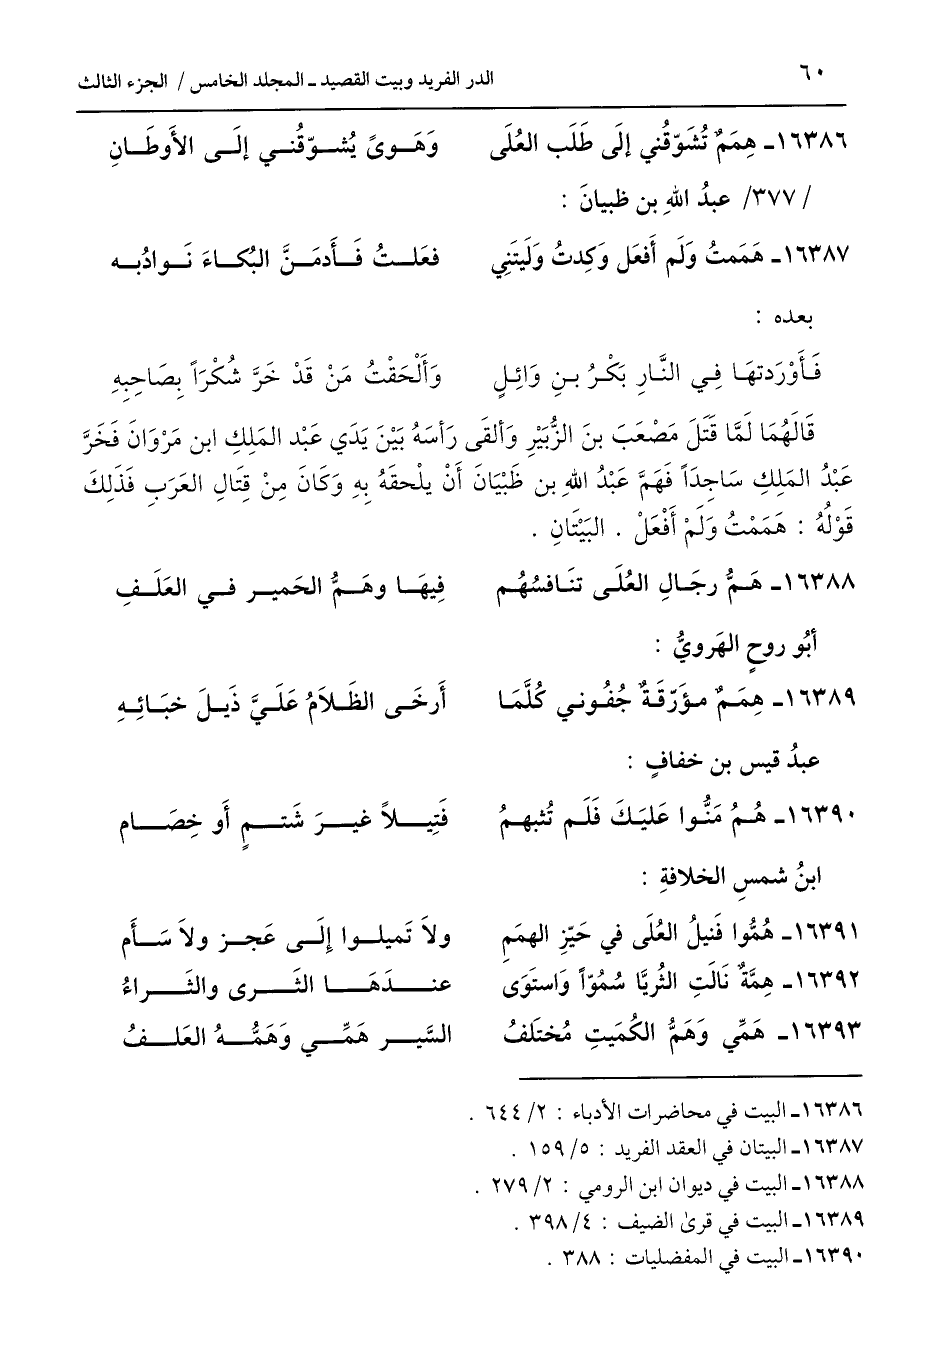 ٦٠
الدر الفريد وبيت القصيد ـ المجلد الخامس / الجزء الثالث
١٦٣٨٦ـ هِمَمٌ تُشَوّقُني إلَى طَلَب العُلَى وَهَـوىً يُشـوّقُنـي إلـى الأَوطَـانِ
/ ٣٧٧/ عبدُ اللهِ بن ظبيانَ :
١٦٣٨٧ـ هَمَمتُ وَلَم أَفعَل وَكِدتُ وَلَيتَنِي فعَلـتُ فَـأَدمَـنَّ البُكـاءَ نَـوادُبـه
بعده :
فَـأَوْرَدتهَـا فِـي النَّـارِ بَكْـرُ بـنِ وَائِـلٍ وَأَلْحَقْتُ مَنْ قَدْ خَرَّ شُكْرَاً بِصَاحِبِهِ
قَالَهُمَا لَمَّا قَتَلَ مَصْعَبَ بنَ الزُّبَيْرِ وَألقَى رَأسَهُ بَيْنَ يَدَي عَبْد المَلِكِ ابن مَرْوَانَ فَخَرَّ
عَبْدُ المَلِكِ سَاجِدَاً فَهَمَّ عَبْدُ اللهِ بن ظَبْيَانَ أَنْ يلْحقَهُ بِهِ وَكَانَ مِنْ فِتَالِ العَرَبِ فَذَلِكَ
قَوْلُهُ : هَمَمْتُ وَلَمْ أَفْعَلْ . البَيْتَانِ .
١٦٣٨٨ـ هَـمُّ رجَـالِ العُلَـى تنَـافسُهُـم فِيهَـا وهَـمُّ الحَميـر فـي العَلَـفِ
أبُو روحٍ الهَرويُّ :
١٦٣٨٩ـ هِمَـمٌ مـؤَرّقَـةٌ جُفُـوني كُلَّمَـا أَرخَـى الظَّـلاَمُ عَلَـيَّ ذَيـلَ خبَـائِـهِ
عبدُ قيس بن خفافٍ :
١٦٣٩٠ـ هُـمُ مَنُّـوا عَلَيـكَ فَلَـم تُثبهـمُ فَتِيـــلاً غيـــرَ شَتـــمٍ أو خِصَـــام
ابنُ شمسِ الخلافةِ :
١٦٣٩١ـ هُمُّوا فَنيلُ العُلَى في حَيّزِ الهمَمِ ولاَ تَميلـوا إلَـى عَجـز ولاَ سَـأَم
١٦٣٩٢ـ هِمَّةٌ نَالَتِ الثريَّا سُمُوّاً وَاستَوَى عنـــدَهَـــا الثَـــرى والثَـــراءُ
١٦٣٩٣ـ هَمِّي وَهَمُّ الكُمَيتِ مُختَلفُ السَّيـــر هَمِّـــي وَهَمُّـــهُ العَلَـــفُ
١٦٣٨٦ـ البيت في محاضرات الأدباء : ٢/ ٦٤٤ .
١٦٣٨٧ـ البيتان في العقد الفريد : ٥/ ١٥٩ .
١٦٣٨٨ـ البيت في ديوان ابن الرومي : ٢/ ٢٧٩ .
١٦٣٨٩ـ البيت في قرىٰ الضيف : ٤/ ٣٩٨ .
١٦٣٩٠ـ البيت في المفضليات : ٣٨٨ .